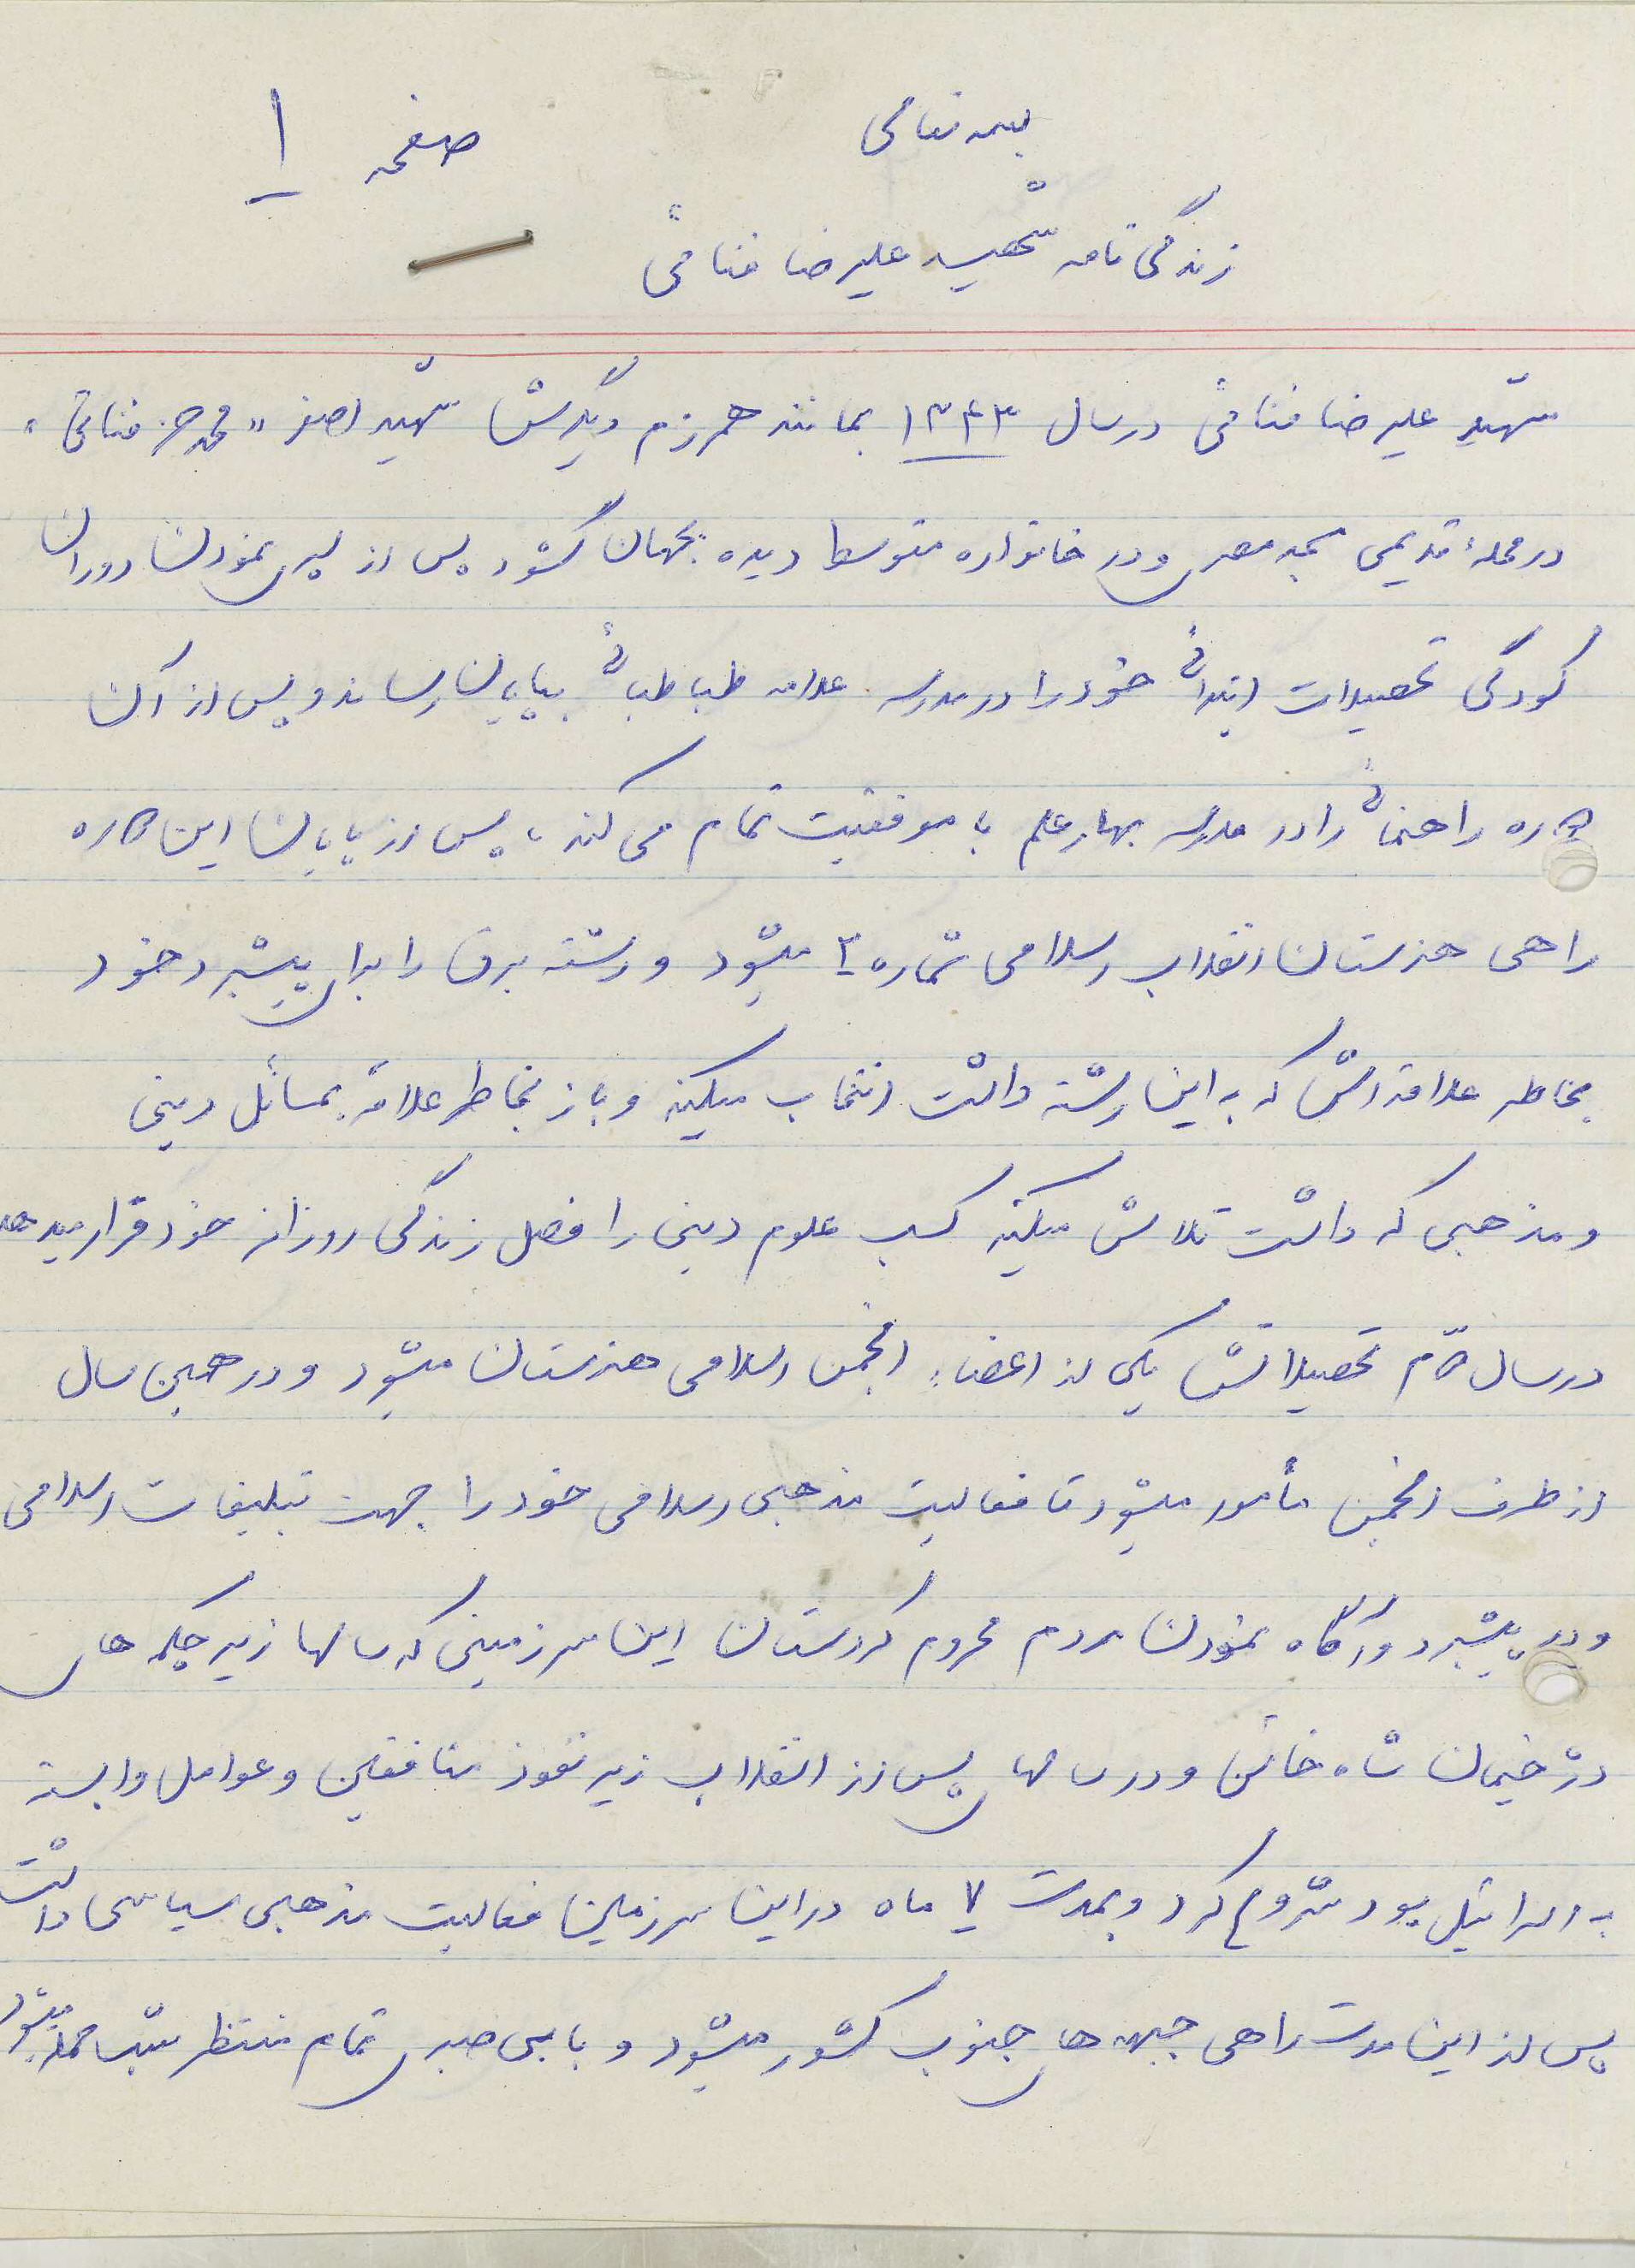 بسمه تعالی
صفحه ۱
زندگی نامه شهید علیرضا فنائی
شهید علیرضا فنائی در سال ۱۳۴۳ بمانند همرزم دیگرش شهید اصغر "
در محلهٔ قدیمی مسجد مصری و در خانواده متوسط دیده بجهان گشود پس از سپری نمودن دوران
کودکی تحصیلات ابتدائی خود را در مدرسه علامه طباطبائی بپایان رساند و پس از آن
دوره راهنمائی را در مدرسه بهار علم با موفقیت تمام می کند، پس از پایان این دوره
راهی هنرستان انقلاب اسلامی شماره ۲ میشود و رشته برق را برای پیشبرد خود
بخاطر علاقه اش که به این رشته داشت انتخاب میکند و باز بخاطر علاقه بمسائل دینی
و مذهبی که داشت تلاش میکند کسب علوم دینی را فصل زندگی روزانه خود قرار میدهد
در سال دوّم تحصیلاتش یکی از اعضاء انجمن اسلامی هنرستان میشود و در همین سال
از طرف انجمن مأمور میشود تا فعالیت مذهبی اسلامی خود را جهت تبلیغات اسلامی
و در پیشبرد و آگاه نمودن مردم محروم کردستان این سرزمینی که سالها زیر چکمه های
دژخیمان شاه خائن و در سالهای پس از انقلاب زیر نفوذ منافقین و عوامل وابسته
به اسرائیل بود شروع کرد و بمدت ۷ ماه در این سرزمین فعالیت مذهبی سیاسی داشت
پس از این مدت راهی جبهه های جنوب کشور میشود و با بی صبری تمام منتظر شب حمله میشود